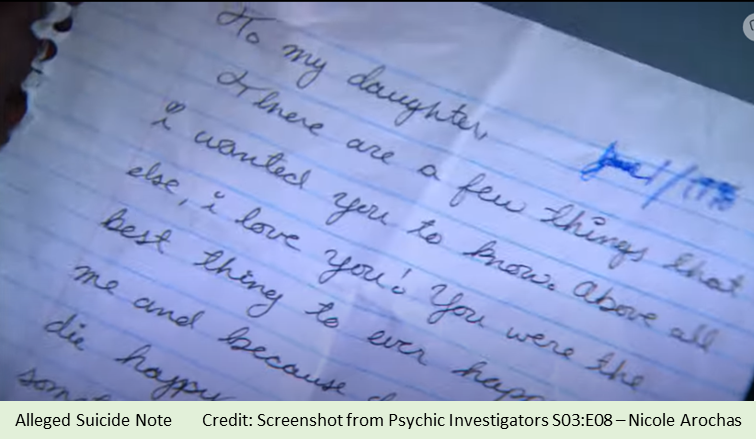 To my daughter,
There are a few things that
i wanted you to know. Above all
else, i love you! You were the
best thing to ever happ
me and because
die happy
Alleged Suicide Note Credit: Screenshot from Psychic Investigators S03:E08 – Nicole Arochas